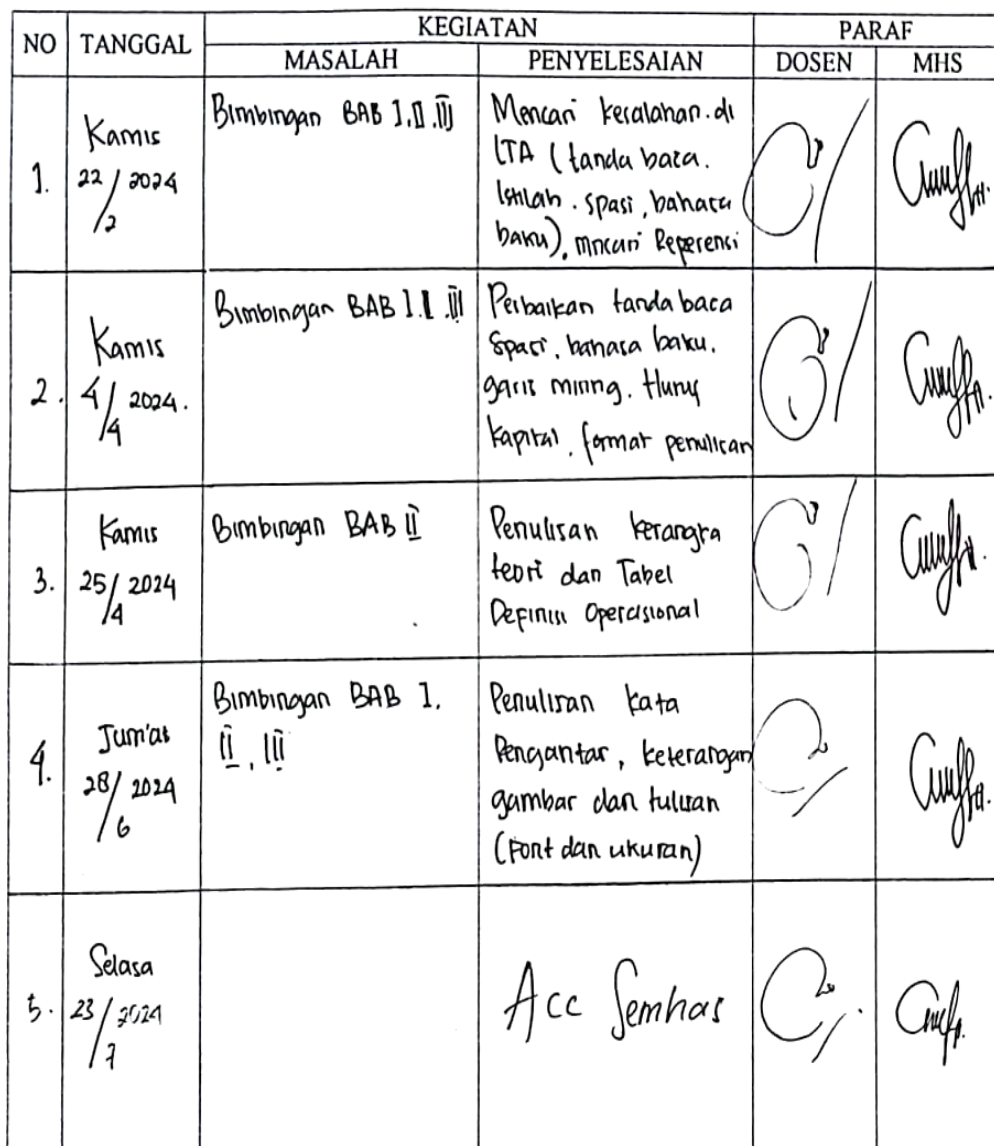 NO TANGGAL KEGIATAN PARAF
MASALAH PENYELESAIAN DOSEN MHS
1.
Kamis
22/2 2024
Bimbingan BAB I.II.III
Mencari kesalahan di
LTA (tanda baca.
Istilah. spasi, bahasa
baku), mncari Reperensi
2.
Kamis
4/4 2024.
Bimbingan BAB I.II.III
Perbaikan tanda baca
Spasi, bahasa baku.
garis miring. Huruf
kapital, format penulisan
3.
Kamis
25/4 2024
Bimbingan BAB II
Penulisan kerangka
teori dan Tabel
Definisi Operasional
4.
Jum'at
28/6 2024
Bimbingan BAB I.
II, III
Penulisan kata
Pengantar, keterangan
gambar dan tulisan
(Font dan ukuran)
5.
Selasa
23/7 2024
Acc Semhas